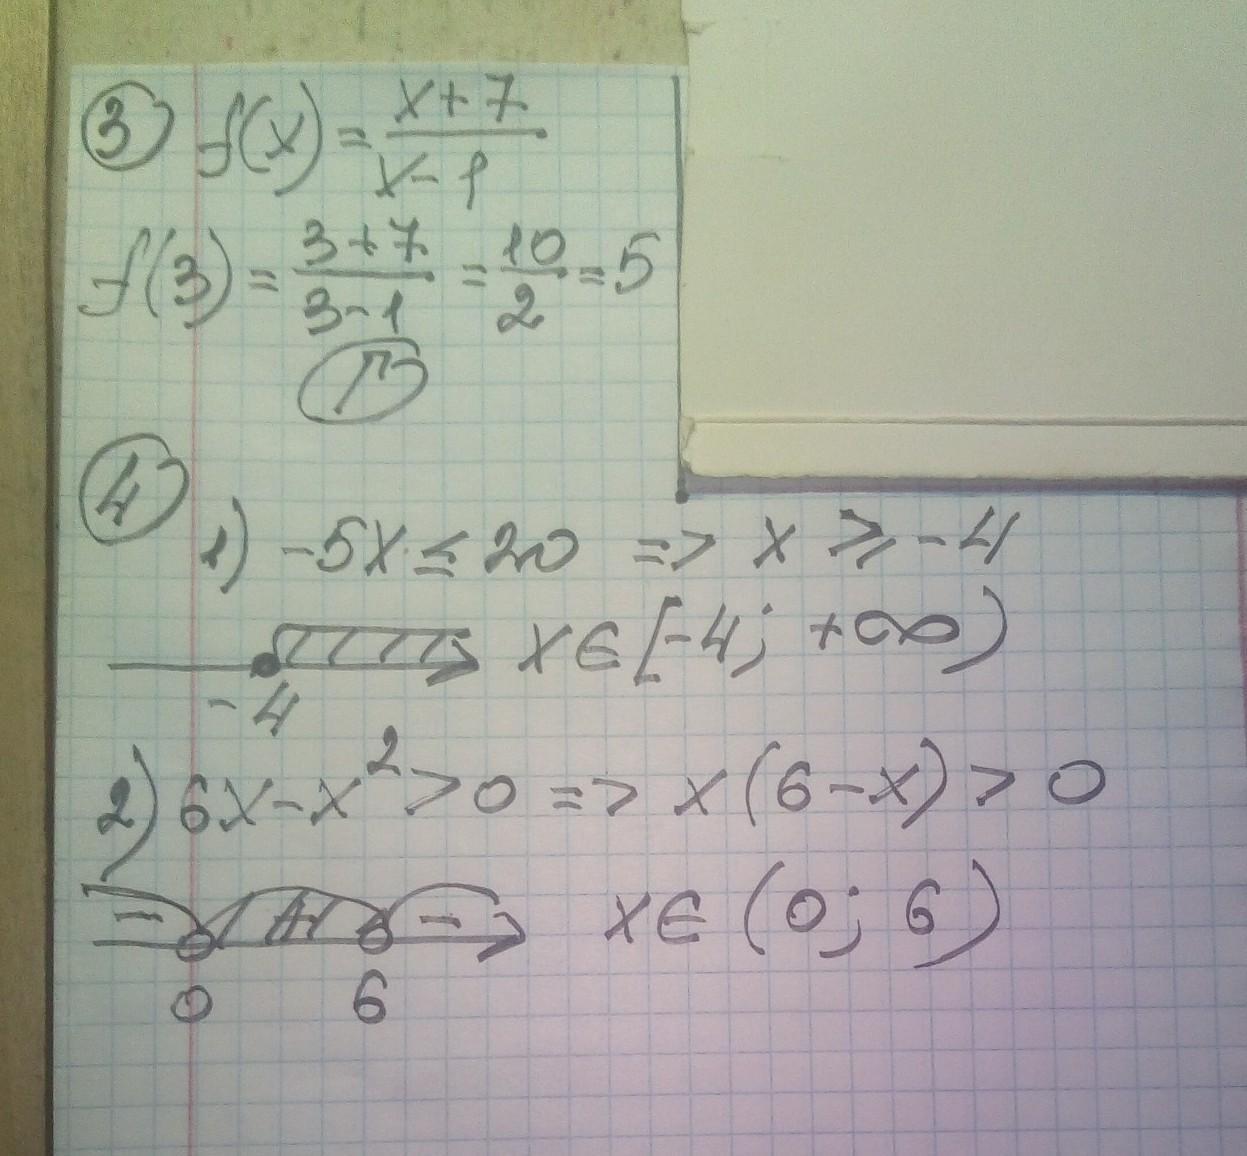 3 f(x) = x+7 / x-1
f(3) = 3+7 / 3-1 = 10 / 2 = 5
Г
4
1) -5x ≤ 20 => x ⩾ -4
-4 x∈[-4; +∞)
2) 6x-x² > 0 => x(6-x) > 0
- + - x∈(0; 6)
0 6